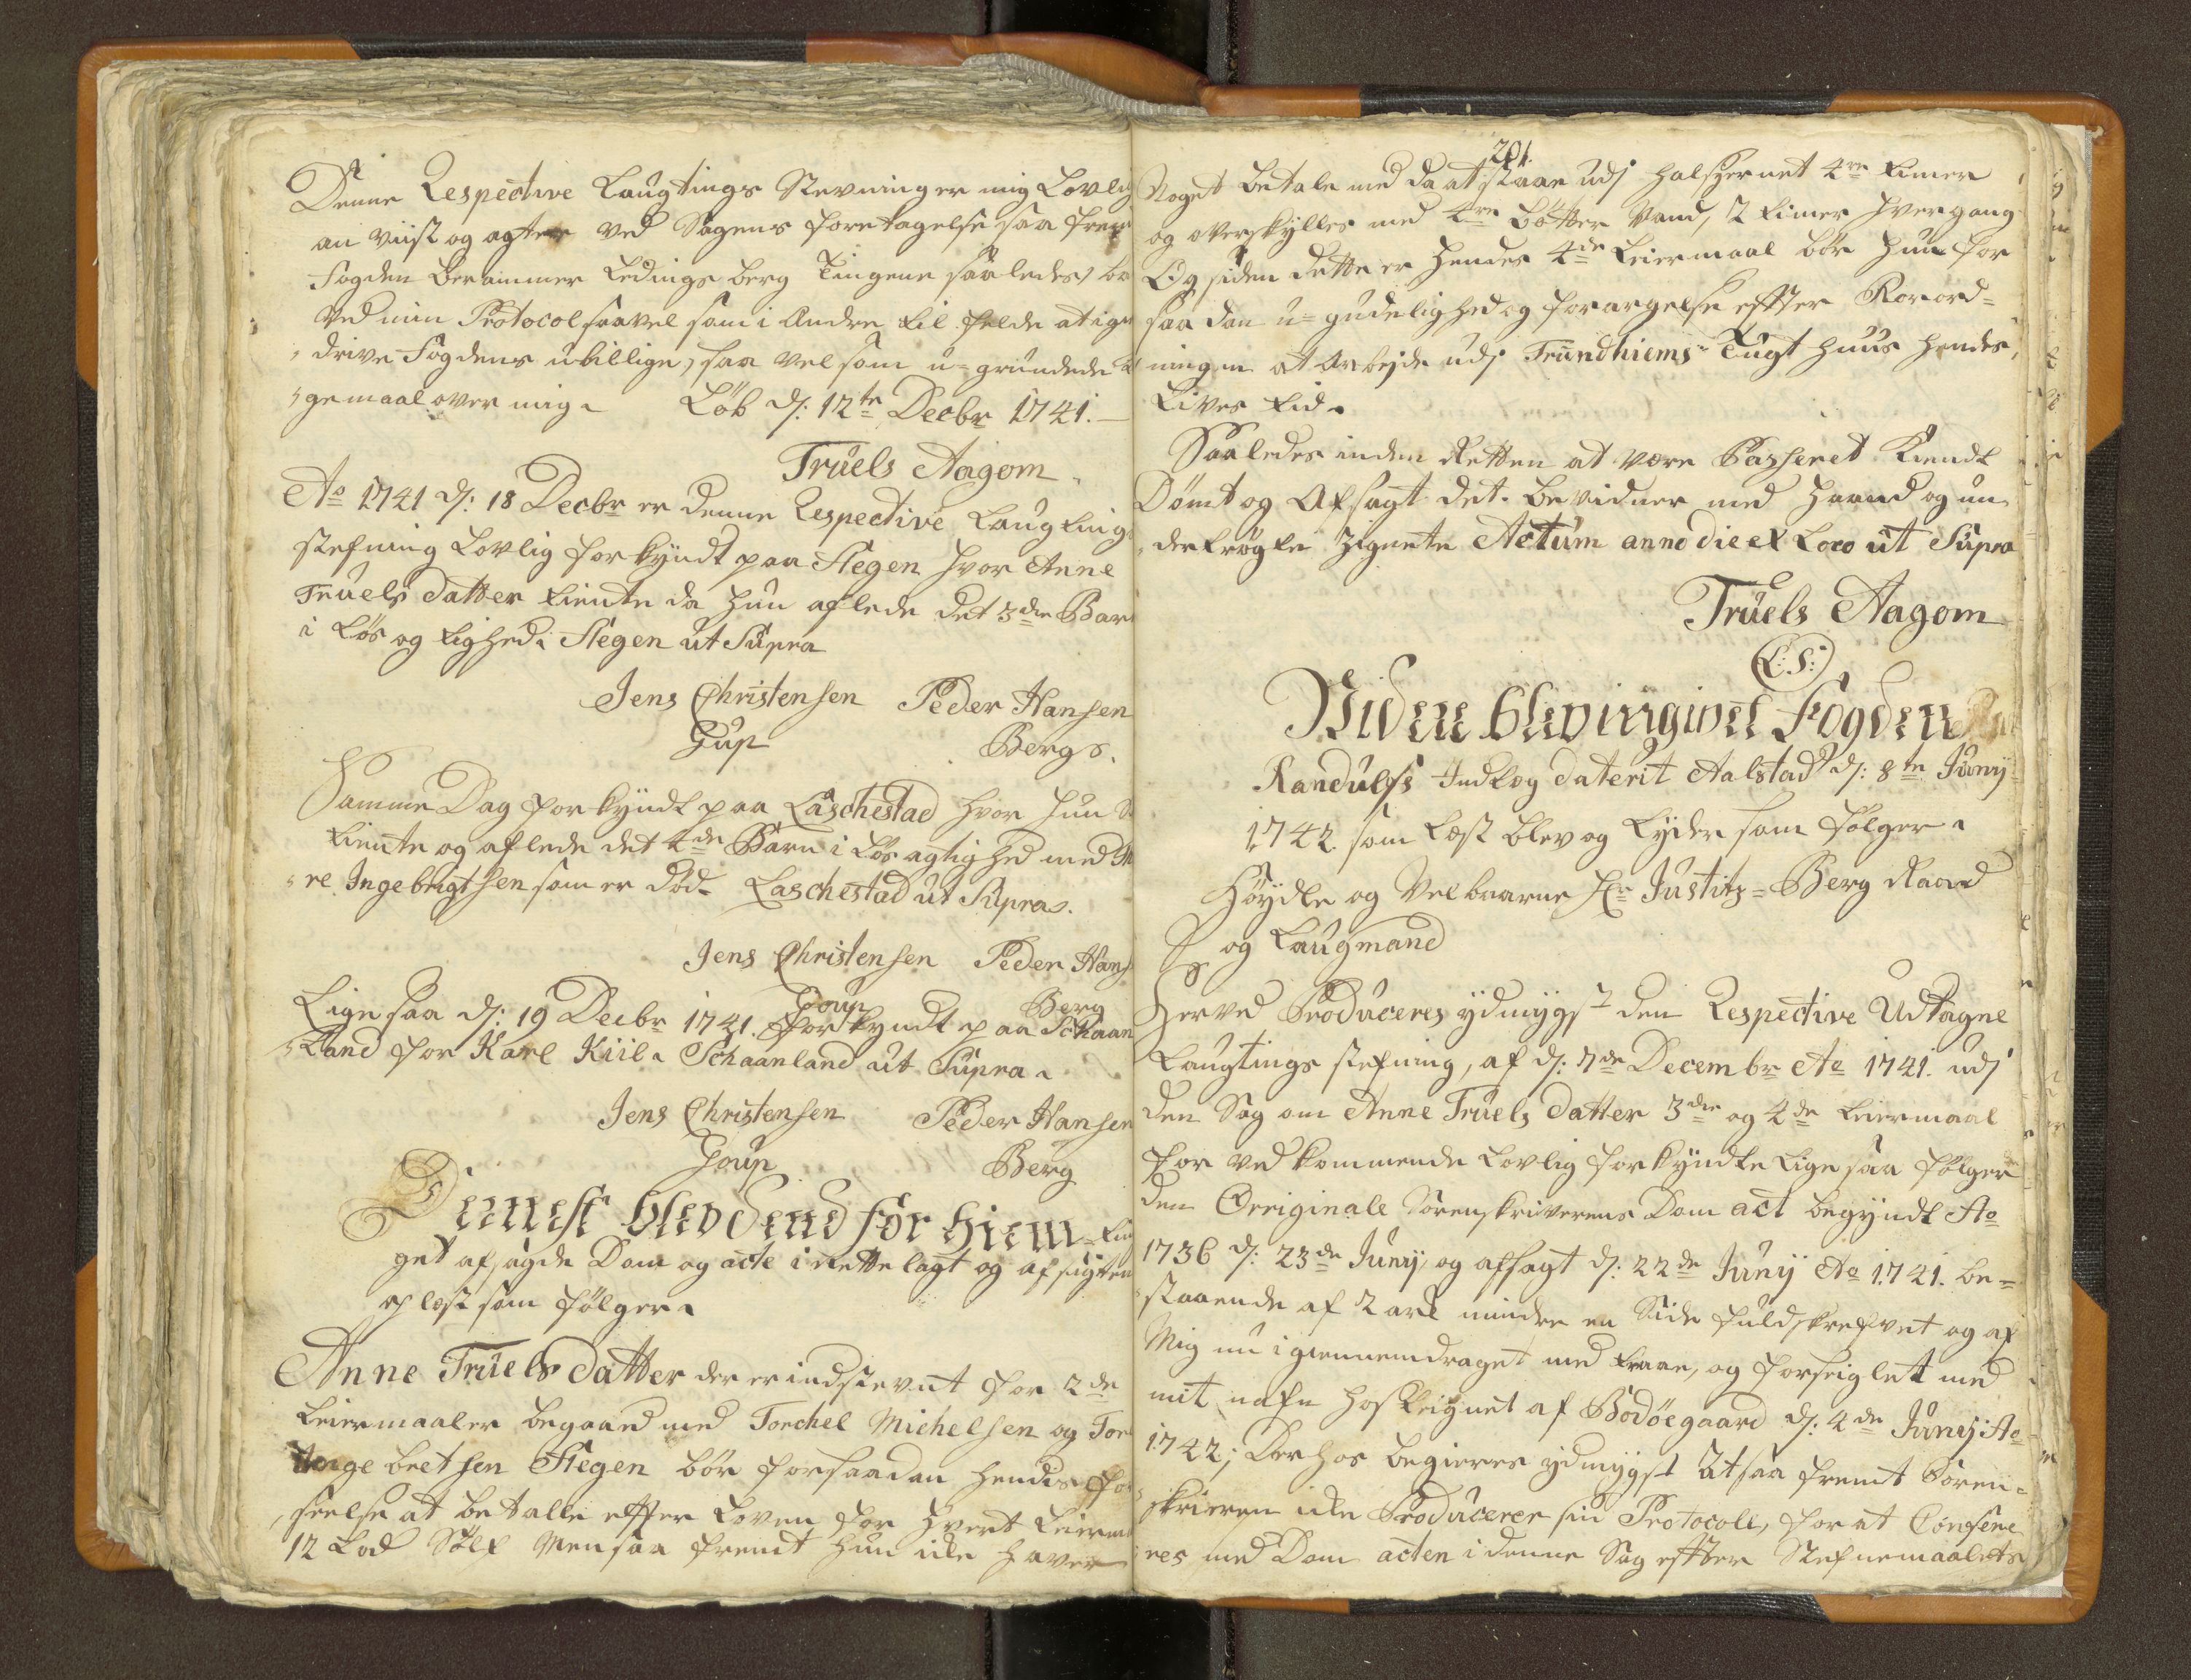 Denne Respective Laugtings Stevning er mig Lovlig
an viist og agter ved Sagens foretagelse saa frem
Fogden berammer Ledings berg Tingene saaledes, be
ved min Protocol saavel som i Andre til felde at igien
drive Fogdens ubillige, saa vel som u-grundede
gemaal over mig. Löb d: 12te Decbr 1741.
Truels Aagom
Ao 1741 d: 18 Decbr er denne Respective Laugting
stefning Lovlig forkyndt paa Stegen hvor Anne
Truels datter tiente da hun aflede det 3die Barn
i Løs og lighed. Stegen ut Supra
Jens Christensen Peder Hansen
Gup Bergs.
Samme Dag forkyndt paa Laschestad hvor hun
tiente og aflede det 4de Barn i Løsagtighed med
re Ingebrigtsen som er död. Laschestad ut Supra.
Jens Christensen Peder Hans
Goup Berg
Ligesaa d: 19 Decbr 1741. forkyndt paa Schaan
Land for Karl Kiil. Schaanland ut Supra.
Jens Christensen Peder Hansen
Goup Berg
Dernest blev Dend for Hiem-tin
get afsagde Dom og acte i rette lagt og afsigten
op lest som følger.
Anne Truels datter der er indstevnt for 2de
Leiermaaler begaaed med Torchel Michelsen og Tor
Inge bretsen Stegen bör forsaadan hendis for
seelse at betalle effter Loven for hvert Leierm
12 Lod Sölf Men saa fremt hun icke haver
201.
Noget betale med da at staae udj halsjernet 4re timer
og overskylles med 4re bötter Vand, 2 timer hver gang
Og siden dette er hendes 4de Leiermaal bör hun for
saa dan u-gudelighed og forargelse effter Forord-
ningen at arbejde udj Trundhiems Tugt huus hendes
Lives tid.
Saaledes inden Retten at være Passeret Kiendt
Dömt og Afsagt det. bevidner med haand og un
dertrögte Zignete Actum anno die et Loco ut Supra
Truels Aagom
(L: S:)
Widere blev inngivet Fogden
Randulfs Indleg daterit Aalstad d: 8te Juny
1742 som lest blev og lyder som fölger.
Höyædle og Velbaarne Hr Justitz-Berg Raad
og Laugmand
Herved Produceres ydmygst den Respective Udtagne
Laugtings stefning, af d: 7de Decembr Ao 1741. udj
den Sag om Anne Truels datter 3die og 4de Leiermaal
for ved kommende Lovlig forkyndte Lige saa fölger
den Originale Sorenskriverens Dom act begyndt Ao
1736 d: 23de Juny, og afsagt d: 22de Juny Ao 1741. be-
staaende af 2 ark mindre en Side fuldskrefvet og af
Mig nu igiennemdraget med traae, og forseiglet med
mit nafn hos teignet af Bodöegaard d: 4de Juny Ao
1742; Derhos begieres ydmygst at saa fremt Soren-
skriveren icke Producerer sin Protocoll, for at Confere
res med Dom acten i denne Sag effter Stefnemaalets